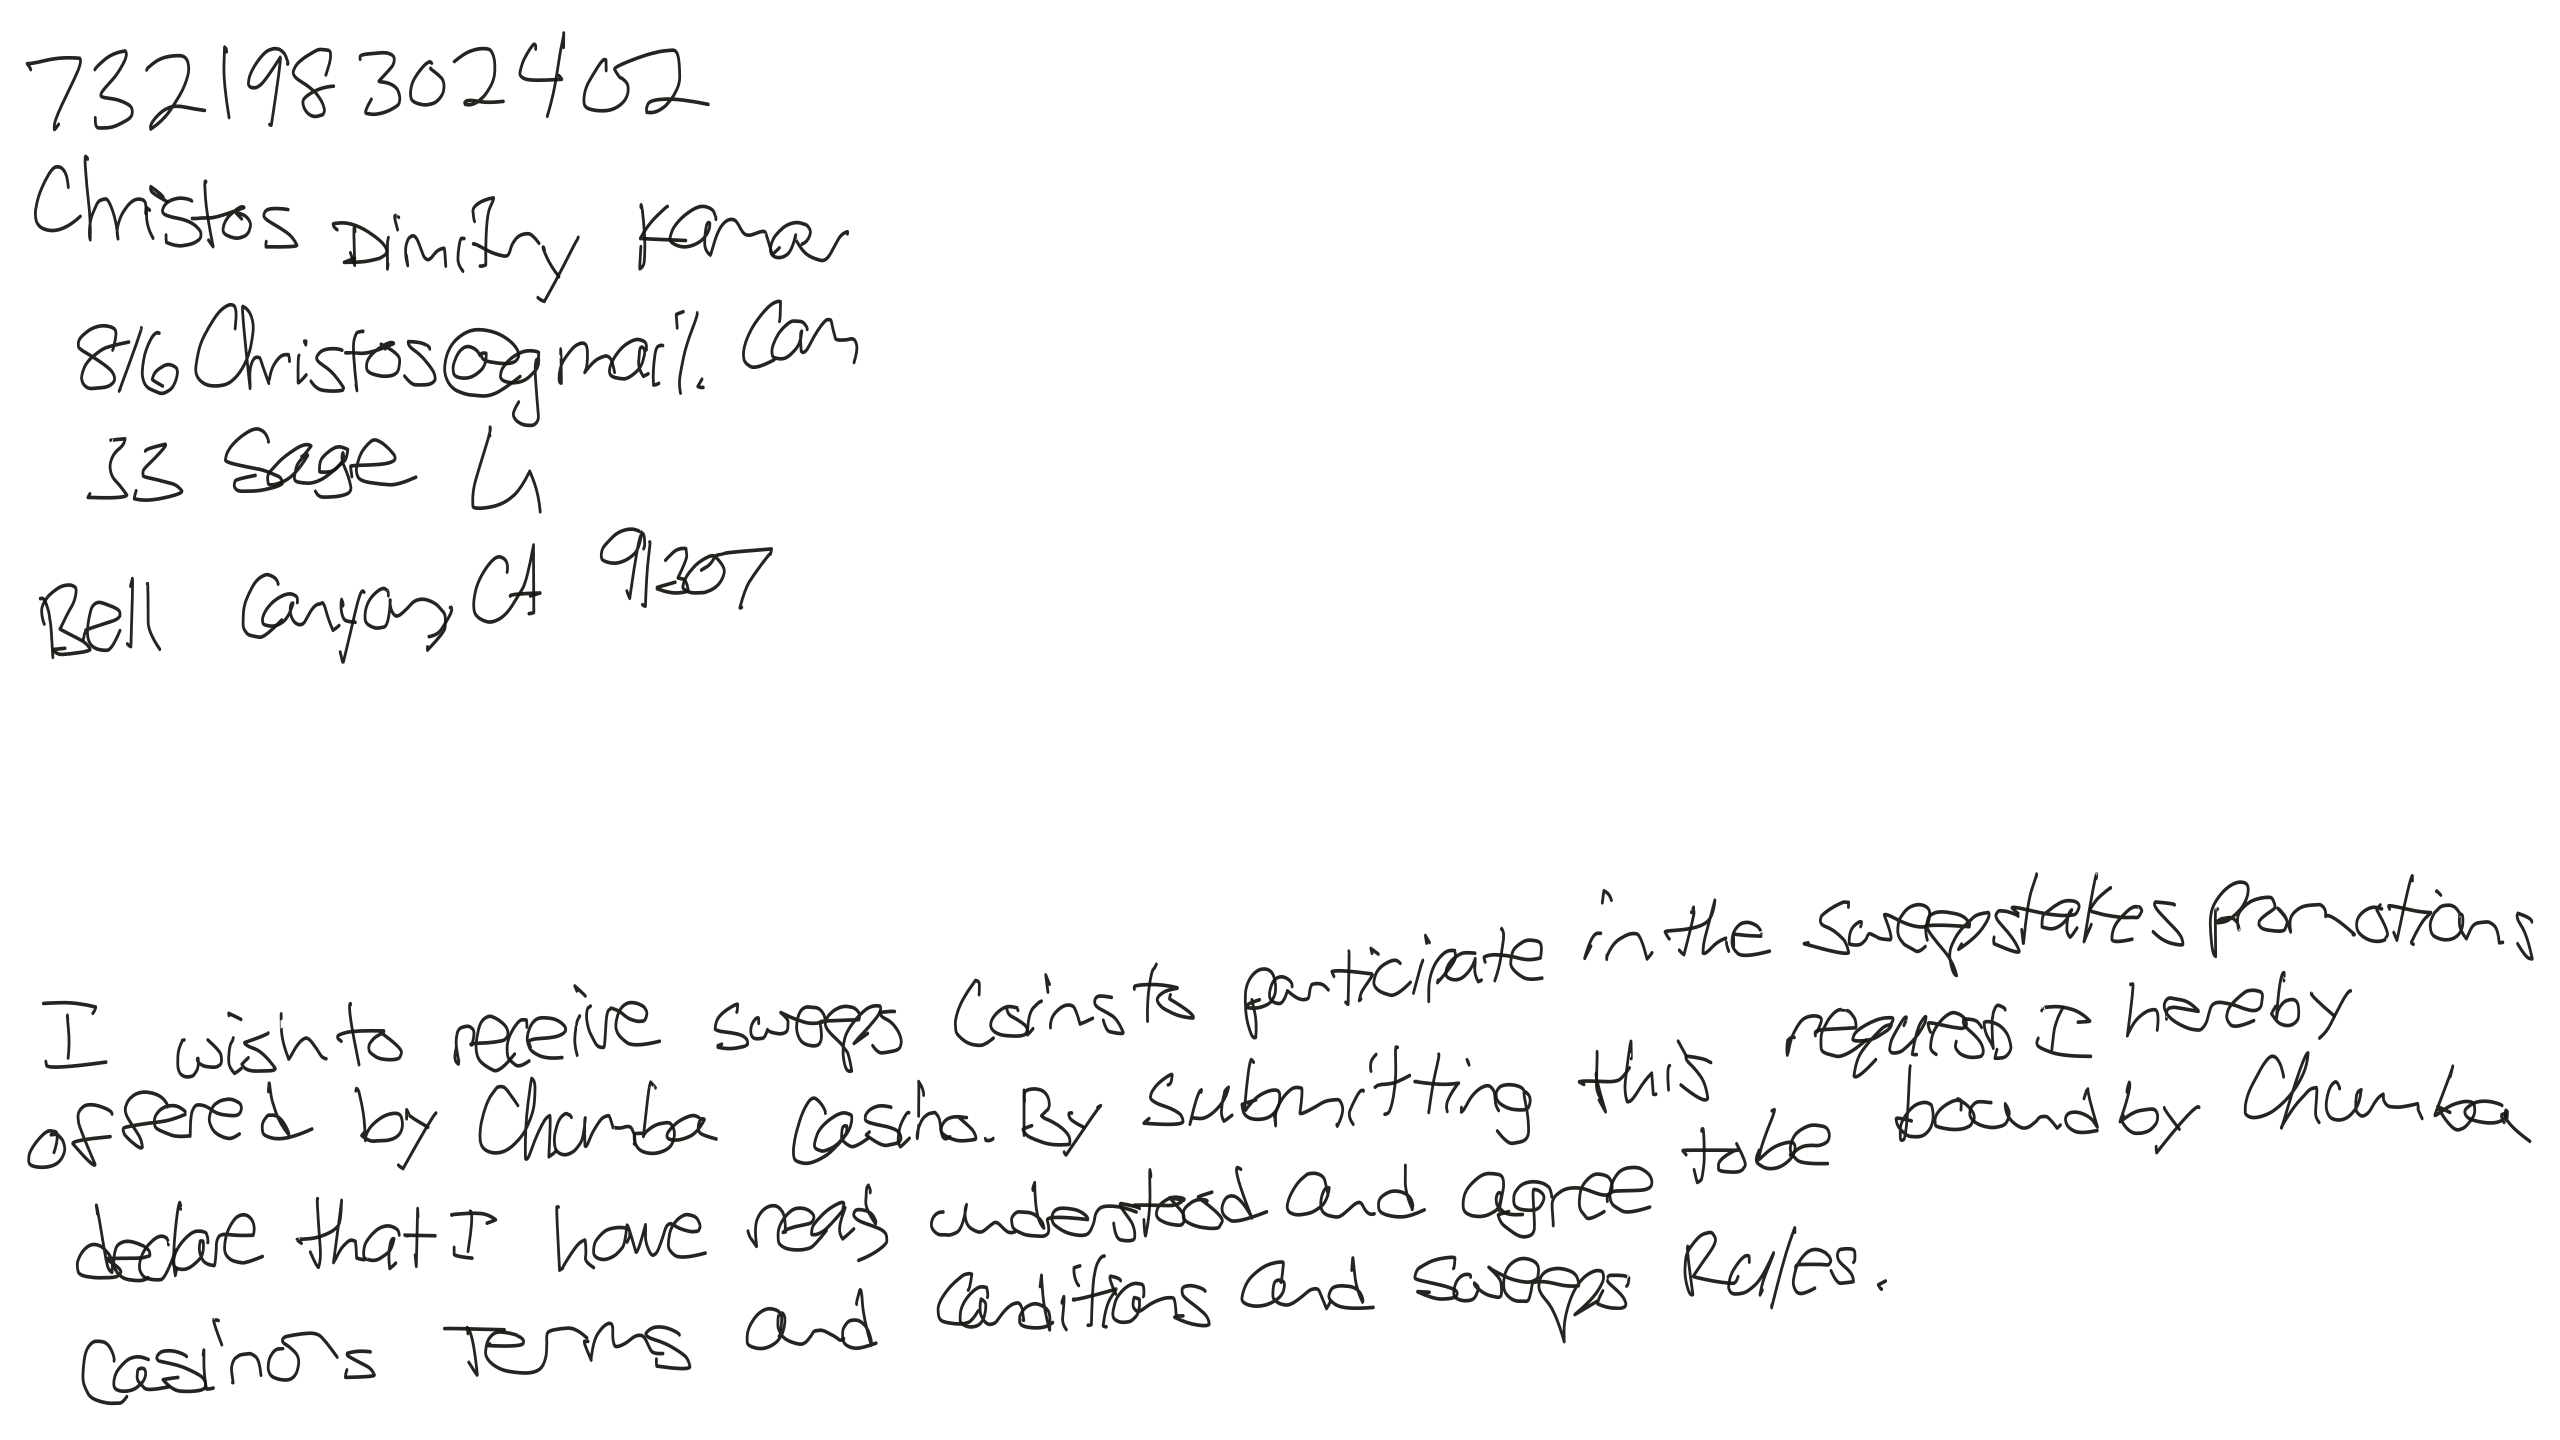 732198302402
Christos Dimitry Kamar
816Christos@gmail.com
33 Sage Ln
Bell Canyon, CA 91307
I wish to receive sweeps Coins to participate in the sweepstakes promotions
offered by Chumba Casino. By submitting this request I hereby
declare that I have read understood and agree to be bound by Chumba
Casino's Terms and Conditions and Sweeps Rules.